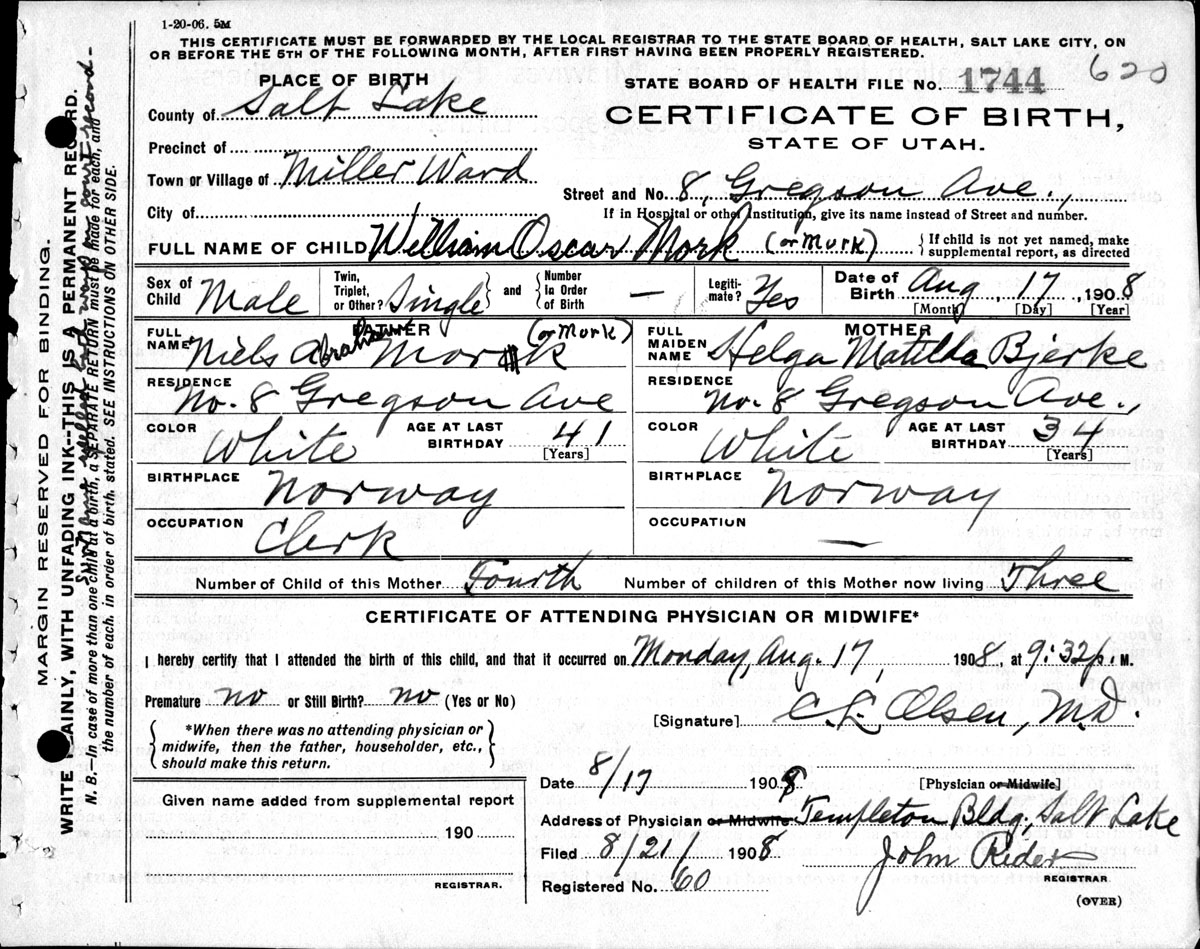 1-20-06. 5M
THIS CERTIFICATE MUST BE FORWARDED BY THE LOCAL REGISTRAR TO THE STATE BOARD OF HEALTH, SALT LAKE CITY, ON
OR BEFORE THE 5TH OF THE FOLLOWING MONTH, AFTER FIRST HAVING BEEN PROPERLY REGISTERED.
PLACE OF BIRTH
STATE BOARD OF HEALTH FILE No. 1744 620
County of Salt Lake
CERTIFICATE OF BIRTH,
STATE OF UTAH.
Precinct of
Town or Village of Miller Ward
Street and No. 8, Gregson Ave.,
City of
If in Hospital or other Institution, give its name instead of Street and number.
FULL NAME OF CHILD William Oscar Mork (or Murk) { If child is not yet named, make
supplemental report, as directed
Sex of Child Male
Twin, Triplet, or Other? Single } and { Number In Order of Birth —
Legiti-mate? Yes
Date of Birth Aug, 17, 1908
[Month] [Day] [Year]
FATHER
FULL NAME Niels Abraham Mork (or Murk)
RESIDENCE No. 8 Gregson Ave
COLOR White AGE AT LAST BIRTHDAY 41
[Years]
BIRTHPLACE Norway
OCCUPATION Clerk
MOTHER
FULL MAIDEN NAME Helga Matilda Bjerke
RESIDENCE No. 8 Gregson Ave.,
COLOR White AGE AT LAST BIRTHDAY 34
[Years]
BIRTHPLACE Norway
OCCUPATION —
Number of Child of this Mother Fourth Number of children of this Mother now living Three
CERTIFICATE OF ATTENDING PHYSICIAN OR MIDWIFE*
I hereby certify that I attended the birth of this child, and that it occurred on Monday, Aug. 17, 1908, at 9:32 p. M.
Premature no or Still Birth? no (Yes or No)
[Signature] C. L. Olsen, M.D.
*When there was no attending physician or
midwife, then the father, householder, etc.,
should make this return.
[Physician or Midwife]
Date 8/17 1908
Address of Physician or Midwife Templeton Bldg., Salt Lake
Filed 8/21/ 1908 John Rider
REGISTRAR
Registered No. 60
(OVER)
Given name added from supplemental report
190
REGISTRAR.
MARGIN RESERVED FOR BINDING.
WRITE PLAINLY, WITH UNFADING INK--THIS IS A PERMANENT RECORD.
Surname spelled both ways on court record-
N. B.—In case of more than one child at a birth, a SEPARATE RETURN must be made for each, and
the number of each, in order of birth, stated. SEE INSTRUCTIONS ON OTHER SIDE.